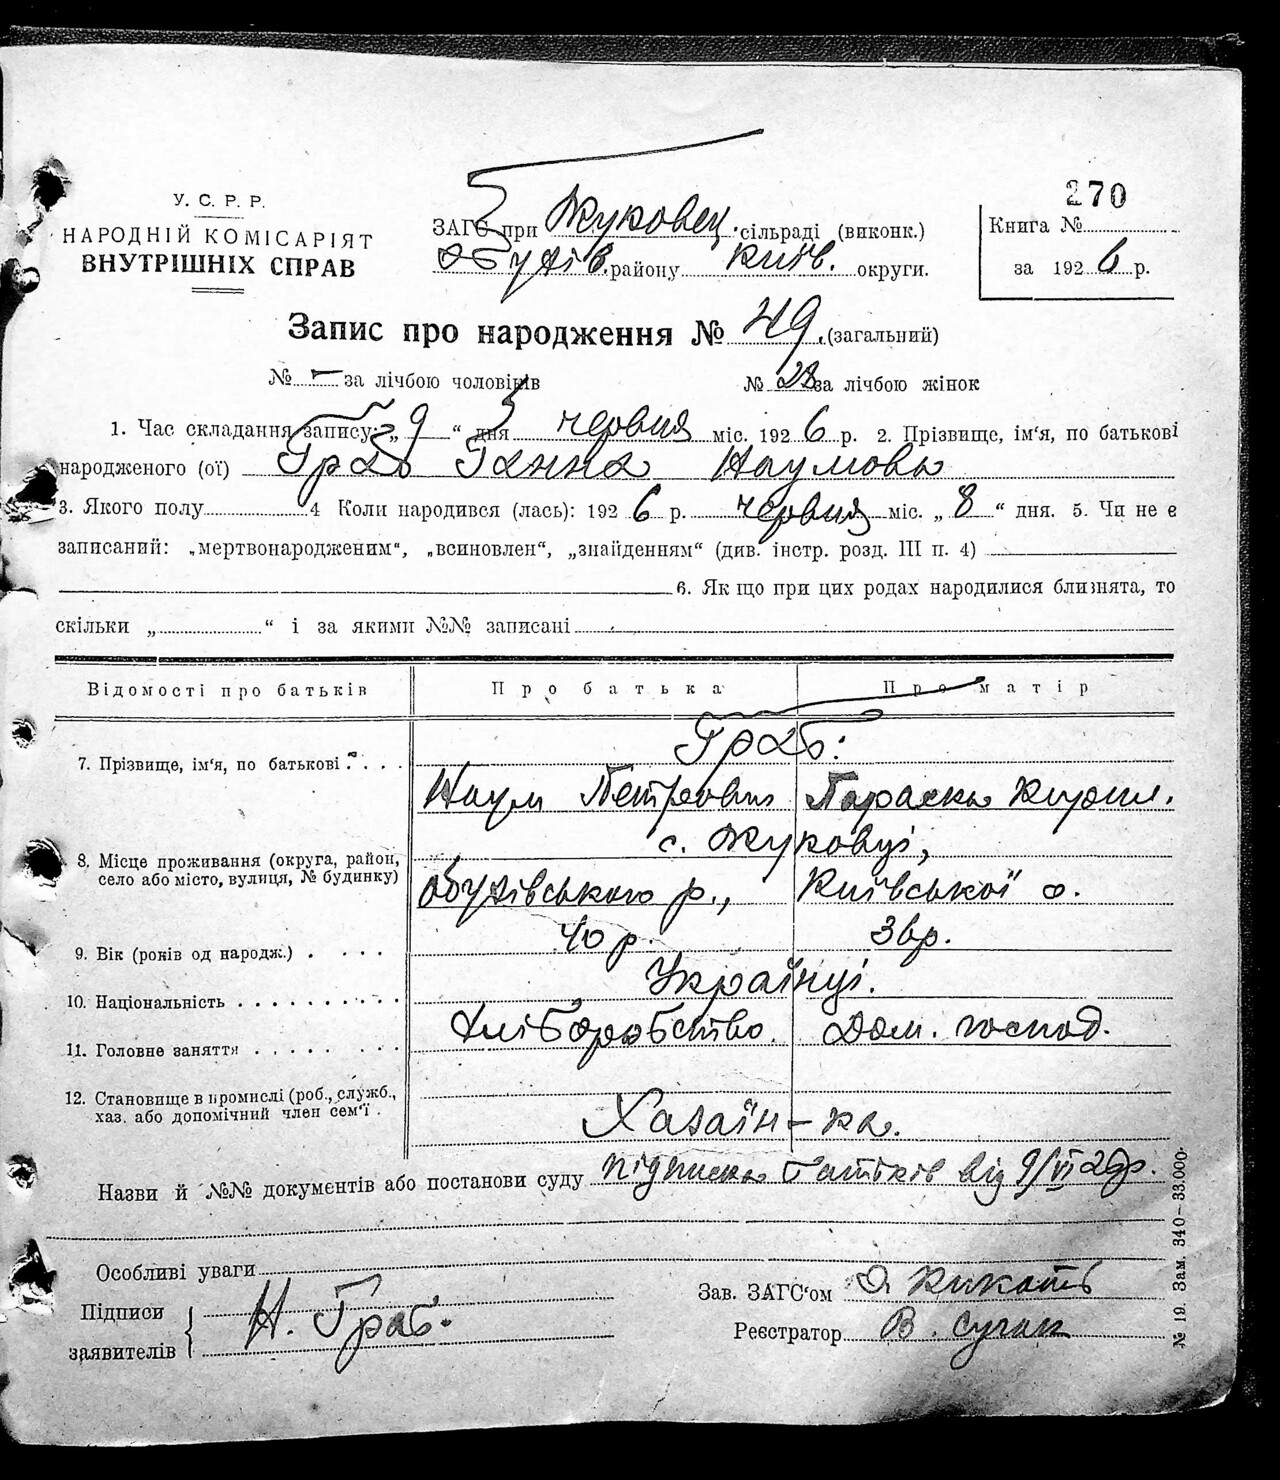 270
У. С. Р. Р.
НАРОДНІЙ КОМІСАРІЯТ
ВНУТРІШНІХ СПРАВ
ЗАГС при Жуковец. сільраді (виконк.)
Обухів. району Київ. округи.
Книга №
за 1926 р.
Запис про народження № 49. (загальний)
№ - за лічбою чоловіків № 28 за лічбою жінок
1. Час складання запису: „ 9 “ дня червня міс. 1926 р. 2. Прізвище, ім‘я, по батькові
народженого (ої) Граб Ганна Наумова
3. Якого полу 4 Коли народився (лась): 1926 р. червня міс. „ 8 “ дня. 5. Чи не є
записаний: „мертвонародженим“, „всиновлен“, „знайденням“ (див. інстр. розд. III п. 4)
6. Як що при цих родах народилися близнята, то
скільки „ “ і за якими №№ записані
Відомості про батьків Про батька Про матір
7. Прізвище, ім‘я, по батькові
Граб:
Наум Петрович Параска Кирил.
8. Місце проживання (округа, район,
село або місто, вулиця, № будинку)
с. Жуковці,
Обухівського р., Київської о.
9. Вік (років од народж.) 40 р. 36р.
10. Національність Українці.
11. Головне заняття Хліборобство. Дом. господ.
12. Становище в промислі (роб., служб.,
хаз. або допомічний член сем‘ї.
Хазаїн-ка.
Назви й №№ документів або постанови суду підписка батьків від 9/VI 26р.
Особливі уваги
Підписи
заявителів
Н. Граб.
Зав. ЗАГС‘ом
Реєстратор В.
№ 19. Зам. 340–33.000.